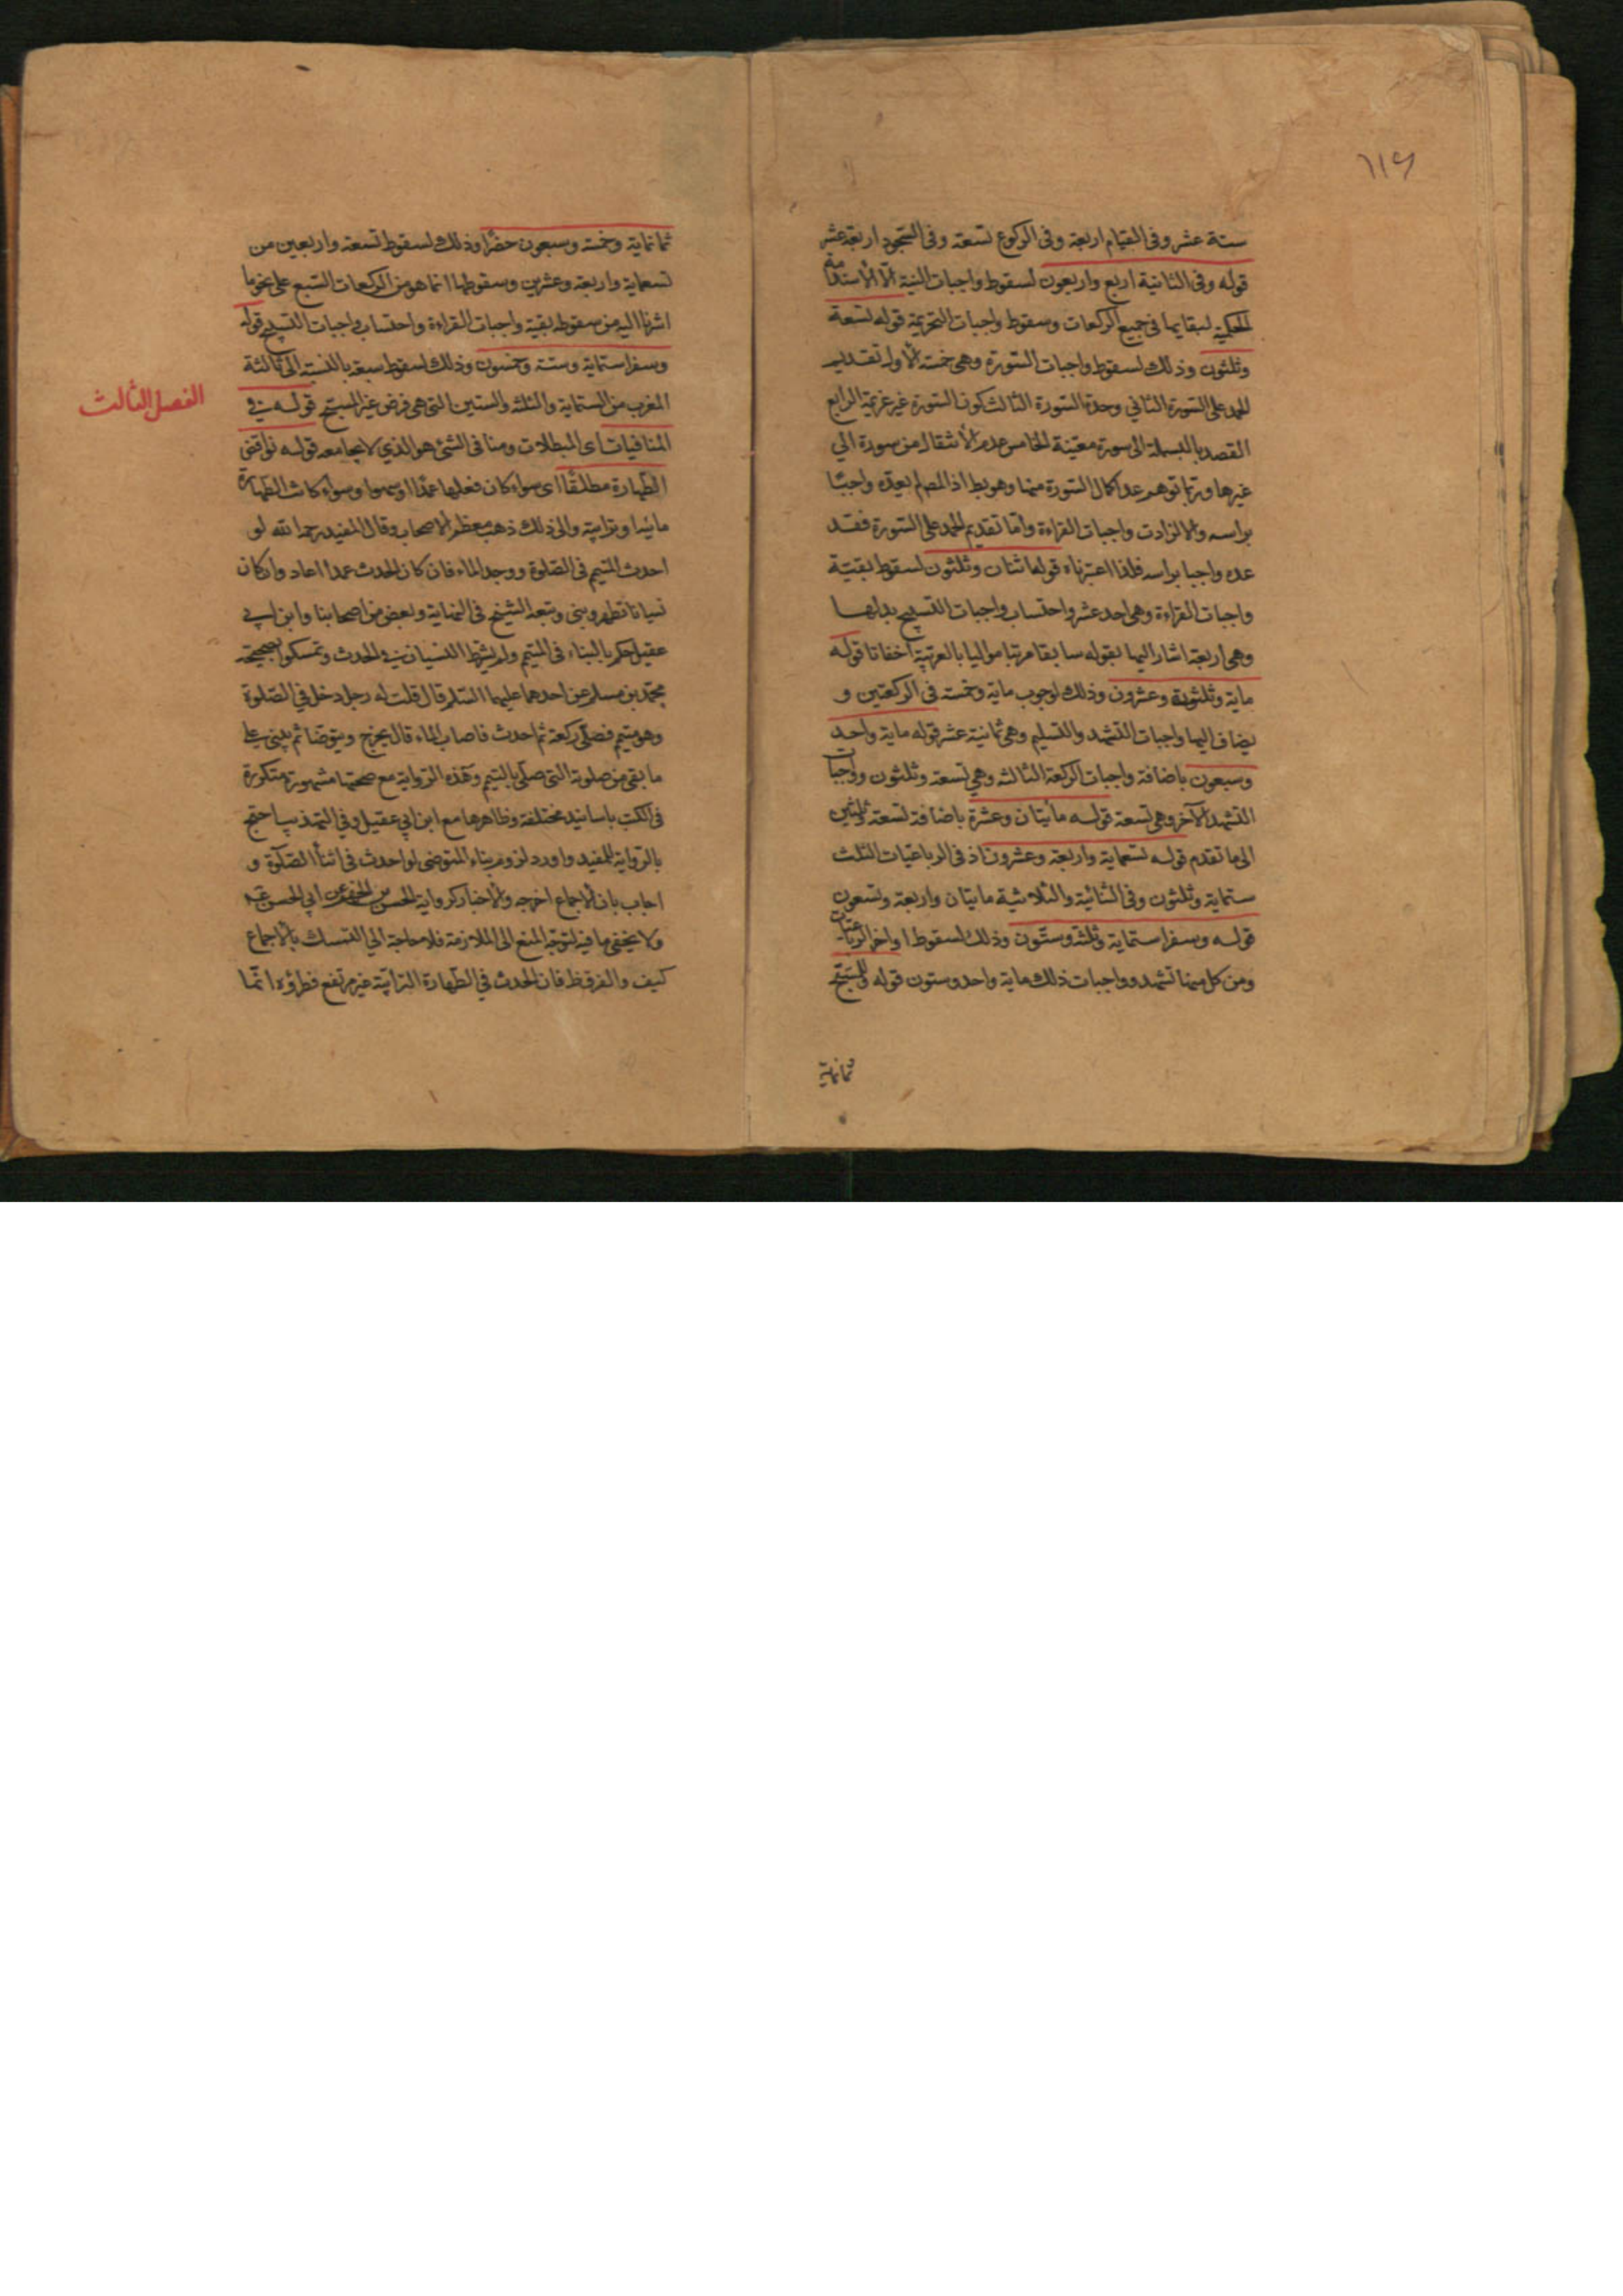 ١١٦
ستة عشر وفى القيام اربعة وفى الركوع تسعة وفى السجود اربعة عشر
قوله وفى الثانية اربع واربعون لسقوط واجبات النية الّا الاستدامة
الحكمية لبقايها فى جميع الركعات وسقوط واجبات التحريمة قوله تسعة
وثلثون وذلك لسقوط واجبات السّورة وهى خمسة الاول تقديم
الحمد على السّورة الثاني وحدة السّورة الثالث كون السّورة غير عزيمة الرابع
القصد بالبسملة الى سورة معيّنة الخامس عدم الأنتقال من سورة الي
غيرها وربّما توهم عد اكمال السّورة منها وهو بط اذ المصا لم يعدّه واجبًا
براسه والا لزادت واجبات القراءة وامّا تقديم الحمد على السّورة فقد
عده واجبا براسه فلذا اعتبرناه قوله اثنان وثلثون لسقوط بقيّة
واجبات القراءة وهى احد عشر واحتساب واجبات التسبيح بدلها
وهى اربعة اشار اليها بقوله سابقا مرتبا مواليا بالعربيّة اخفاتا قوله
ماية وثلثة وعشرون وذلك لوجوب ماية وخمسة فى الركعتين و
يضاف اليها واجبات التشهد والتسليم وهى ثمانية عشر قوله ماية واحد
وسبعون باضافة واجبات الركعة الثالثة وهي تسعة وثلثون وواجبات
التشهد الآخر وهى تسعة قوله مأيتان وعشرة باضافة تسعة وثلثين
الى ما تقدم قوله تسعماية واربعة وعشرون اذ فى الرباعيّات الثلث
ستماية وثلثون وفى الثنائية والثلاثية مايتان واربعة وتسعون
قوله وسفرا ستماية وثلثة وستّون وذلك لسقوط اواخر الرباعيّات
ومن كل منها تشهد وواجبات ذلك ماية واحد وستون قوله وللمسبّح
ثمانماية
ثمانماية وخمسة وسبعون حضرًا وذلك لسقوط تسعة واربعين من
تسعماية واربعة وعشرين وسقوطها انّما هو من الركعات السّبع على نحو ما
اشرنا اليه من سقوط بقيّة واجبات القراءة واحتساب واجبات التسبيح قوله
وسفرا ستماية وستة وخمسون وذلك لسقوط سبعة بالنسبة الى ثالثة
المغرب من الستماية والثلثة والستين التى هى فرض غير المسبّح قوله في
الفصل الثالث
المنافيات اى المبطلات ومنافى الشئ هو الذي لا يجامعه قوله نواقض
الطّهارة مطلقًا اى سواء كان فعلها عمدًا او سهوا وسواء كانت الطّهارة
مائية او ترابيّة والى ذلك ذهب معظم الاصحاب وقال المفيد رحمه الله لو
احدث المتيمّم فى الصّلوة ووجد الماء فان كان الحدث عمدًا اعاد وان كان
نسيانا تطهر وبنى وتبعه الشيخ فى النهاية وبعض من اصحابنا وابن ابي
عقيل حكم بالبناء فى المتيمّم ولم يشترط النسيان في الحدث وتمسكوا بصحيحة
محمّد بن مسلم عن احدهما عليهما السّلم قال قلت له رجل دخل في الصّلوة
وهو متيمّم فصلّى ركعة ثم احدث فاصاب الماء قال يخرج ويتوضّأ ثم يبنى على
ما بقى من صلوته التى صلّى بالتيمّم وهذه الرّواية مع صحتها مشهورة متكررة
فى الكتب باسانيد مختلفة وظاهرها مع ابن ابي عقيل وفي التهذيب احتج
بالرّواية للمفيد واورد لزوم بناء المتوضى لو احدث فى اثناء الصّلوة و
اجاب بان الاجماع اخرجه والاخبار كرواية الحسن بن الجهم عن ابي الحسن ع
ولا يخفى ما فيه لتوجّه المنع الى الملازمة فلا حاجة الي التمسك بالاجماع
كيف والفرق ظ فان الحدث في الطّهارة الترابيّة غير مرتفع فطرؤه انمّا